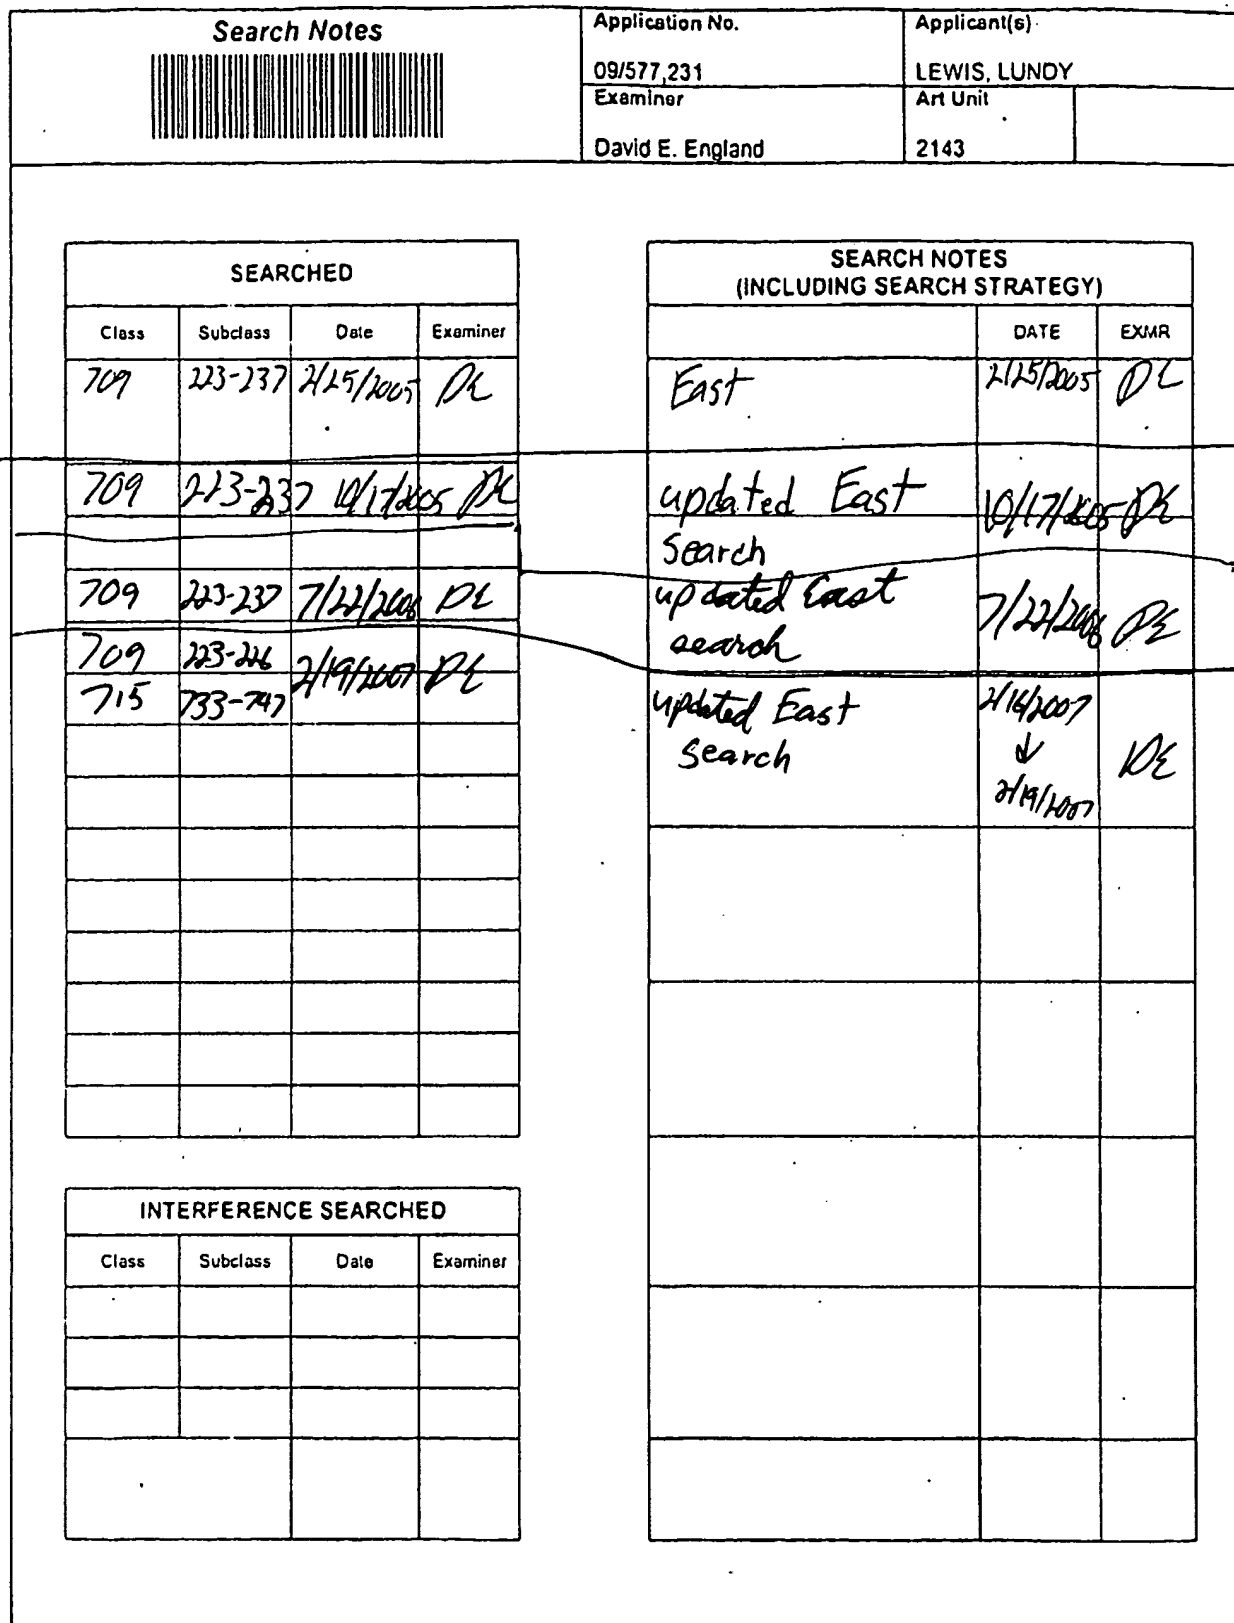 Search Notes
Application No.
Applicant(s)
09/577,231
LEWIS, LUNDY
Examiner
Art Unit
David E. England
2143
SEARCHED
Class Subclass Date Examiner
709 223-237 2/25/2005 DE
709 223-237 10/17/2005 DE
709 223-237 7/22/2006 DE
709 223-226 2/19/2007 DE
715 733-747
INTERFERENCE SEARCHED
Class Subclass Date Examiner
SEARCH NOTES
(INCLUDING SEARCH STRATEGY)
DATE EXMR
East 2/25/2005 DE
updated East 10/17/2005 DE
Search
updated East 7/22/2006 DE
search
updated East 2/16/2007
Search ↓ DE
2/19/2007